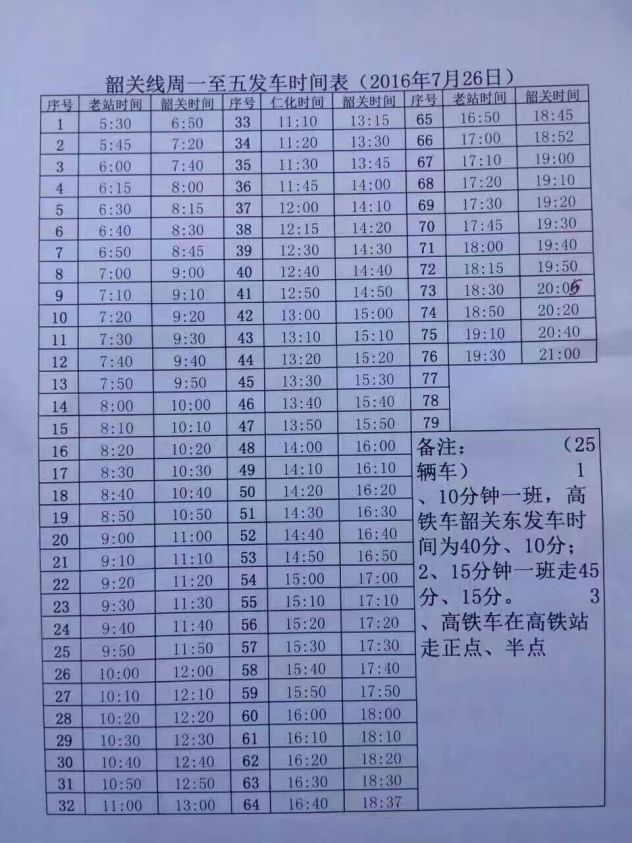 韶关线周一至五发车时间表（2016年7月26日）
序号 老站时间 韶关时间 序号 仁化时间 韶关时间 序号 老站时间 韶关时间
1 5:30 6:50 33 11:10 13:15 65 16:50 18:45
2 5:45 7:20 34 11:20 13:30 66 17:00 18:52
3 6:00 7:40 35 11:30 13:45 67 17:10 19:00
4 6:15 8:00 36 11:45 14:00 68 17:20 19:10
5 6:30 8:15 37 12:00 14:10 69 17:30 19:20
6 6:40 8:30 38 12:15 14:20 70 17:45 19:30
7 6:50 8:45 39 12:30 14:30 71 18:00 19:40
8 7:00 9:00 40 12:40 14:40 72 18:15 19:50
9 7:10 9:10 41 12:50 14:50 73 18:30 20:05
10 7:20 9:20 42 13:00 15:00 74 18:50 20:20
11 7:30 9:30 43 13:10 15:10 75 19:10 20:40
12 7:40 9:40 44 13:20 15:20 76 19:30 21:00
13 7:50 9:50 45 13:30 15:30 77
14 8:00 10:00 46 13:40 15:40 78
15 8:10 10:10 47 13:50 15:50 79
16 8:20 10:20 48 14:00 16:00
17 8:30 10:30 49 14:10 16:10
18 8:40 10:40 50 14:20 16:20
19 8:50 10:50 51 14:30 16:30
20 9:00 11:00 52 14:40 16:40
21 9:10 11:10 53 14:50 16:50
22 9:20 11:20 54 15:00 17:00
23 9:30 11:30 55 15:10 17:10
24 9:40 11:40 56 15:20 17:20
25 9:50 11:50 57 15:30 17:30
26 10:00 12:00 58 15:40 17:40
27 10:10 12:10 59 15:50 17:50
28 10:20 12:20 60 16:00 18:00
29 10:30 12:30 61 16:10 18:10
30 10:40 12:40 62 16:20 18:20
31 10:50 12:50 63 16:30 18:30
32 11:00 13:00 64 16:40 18:37
备注： （25
辆车） 1
、10分钟一班，高
铁车韶关东发车时
间为40分、10分；
2、15分钟一班走45
分、15分。 3
、高铁车在高铁站
走正点、半点